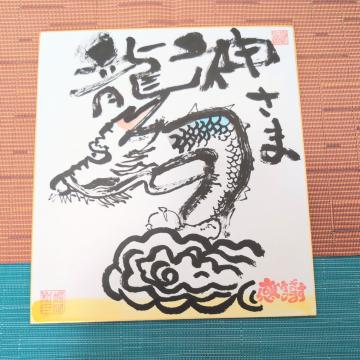 龍神さま
感謝